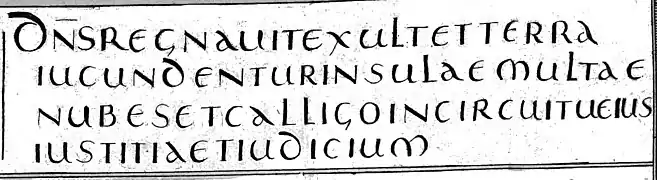 DN̅SREGNAUITEXULTETTERRA
IUCUNDENTURINSULAEMULTAE
NUBESETCALLIGOINCIRCUITUEIUS
IUSTITIAETIUDICIUM